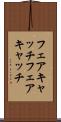 フェアキャ
ッチフェア
キャッチ